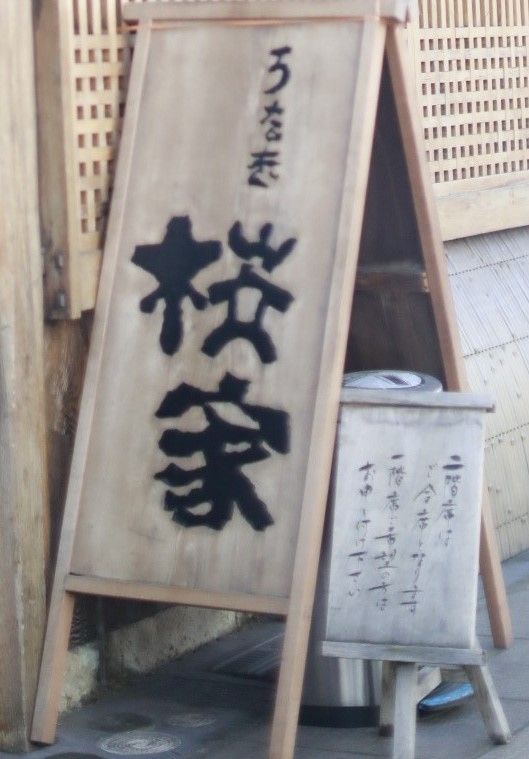 うなぎ
桜家
二階席は
と会席となります
一階席ご希望の方は
お申し付け下さい